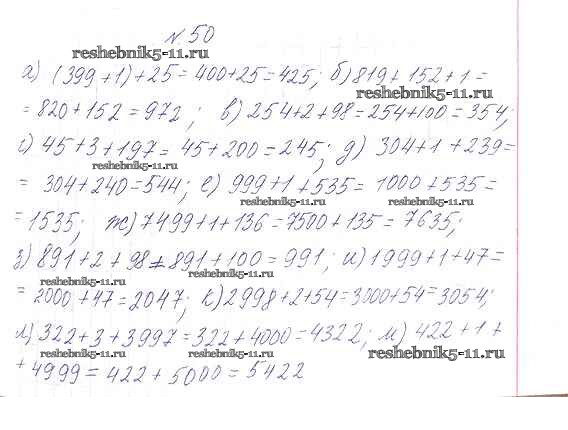 № 50
reshebnik5-11.ru
а) (399+1)+25=400+25=425; б) 819+152+1=
reshebnik5-11.ru
=820+152=972; в) 254+2+98=254+100=354;
г) 45+3+197=45+200=245; д) 304+1+239=
reshebnik5-11.ru
=304+240=544; е) 999+1+535=1000+535=
reshebnik5-11.ru reshebnik5-11.ru
=1535; ж) 7499+1+136=7500+135=7635;
з) 891+2+98=891+100=991; и) 1999+1+47=
reshebnik5-11.ru reshebnik5-11.ru
=2000+47=2047; к) 2998+2+54=3000+54=3054;
л) 322+3+3997=322+4000=4322; м) 422+1+
reshebnik5-11.ru reshebnik5-11.ru reshebnik5-11.ru
+4999=422+5000=5422